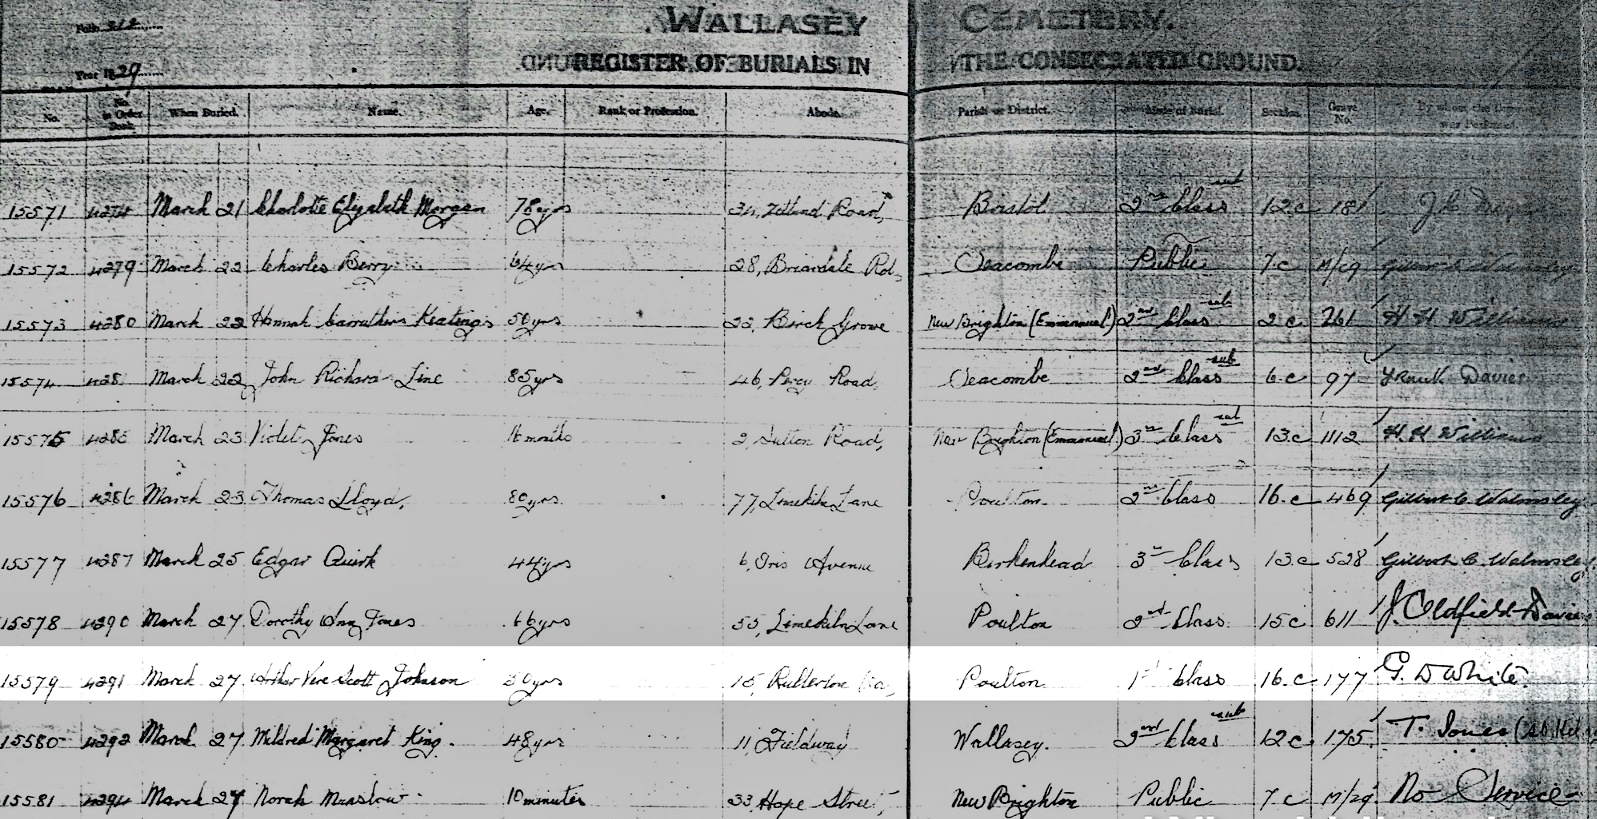 Folio 312
WALLASEY CEMETERY.
Year 1929
REGISTER OF BURIALS IN THE CONSECRATED GROUND.
No. No. in Order Book When Buried. Name. Age. Rank or Profession. Abode. Parish or District. Mode of Burial. Section. Grave No.
15571 March 21 Charlotte Elizabeth Morgan 78 yrs Zetland Road, Bristol 2nd Class sub 12.c 181
15572 4279 March 22 Charles Berry 64 yrs 28, Briardale Rd, Seacombe Public 7.c M/29 Gilbert C Walmsley
15573 4280 March 22 Hannah Carruthers Keatings 50 yrs 22, Birch Grove New Brighton (Emmanuel) 2nd Class sub 2.c 261 H H Williams
15574 428 March 22 John Richard Line 85 yrs 46, Percy Road, Seacombe 2nd Class sub 6.c 97 Davies
15575 March 23 Violet Jones 16 months 2, Sutton Road, New Brighton (Emmanuel) 3rd Class sub 13.c 1112 H. H Williams
15576 4286 March 23 Thomas Lloyd, 80 yrs 77, Limekiln Lane Poulton 2nd Class 16.c 469 Gilbert C Walmsley
15577 4287 March 25 Edgar Quirk 44 yrs 6, Iris Avenue Birkenhead 3rd Class 13.c 528 Gilbert C. Walmsley
15578 4290 March 27 Dorothy Ann Jones 66 yrs 55, Limekiln Lane Poulton 2nd Class 15.c 611 J. Oldfield-Davies
15579 4291 March 27 Arthur Vere Scott Johnson 50 yrs 15, Poulton 1st Class 16.c 177 G. D White.
15580 4292 March 27 Mildred Margaret King. 48 yrs 11, Fieldway Wallasey. 2nd Class sub 12.c 175 T. Jones
15581 4294 March 27 Norah 10 minutes 33, Hope Street, New Brighton Public 7.c M/29 No Service